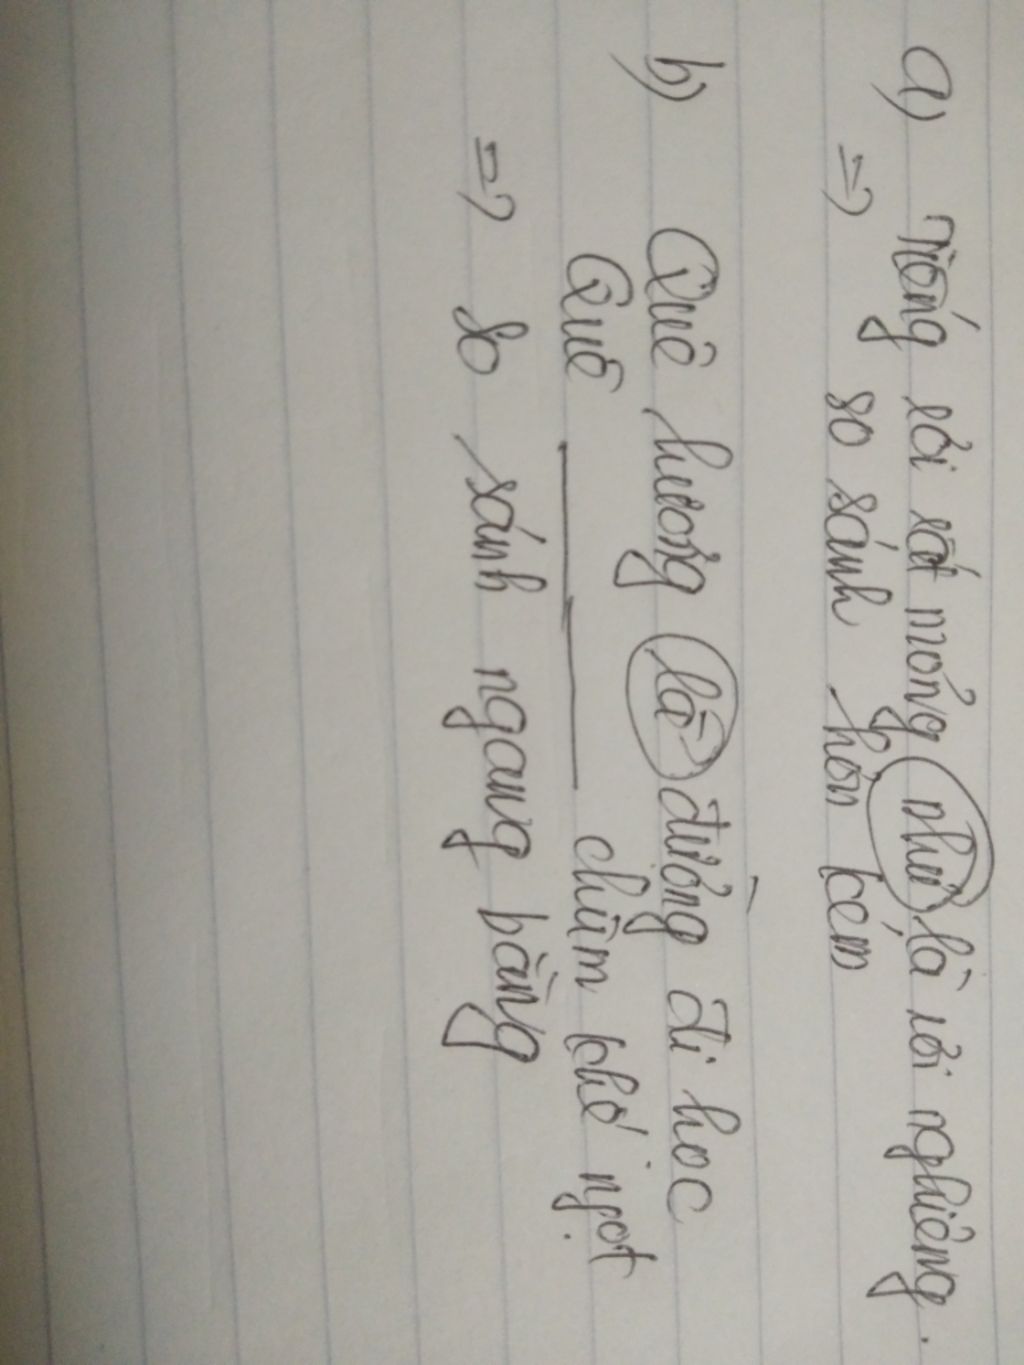 a) Tiếng rơi rất mỏng như là rơi nghiêng.
=> so sánh hơn kém
b) Quê hương là đường đi học
Quê ____ chùm khế ngọt
=> so sánh ngang bằng